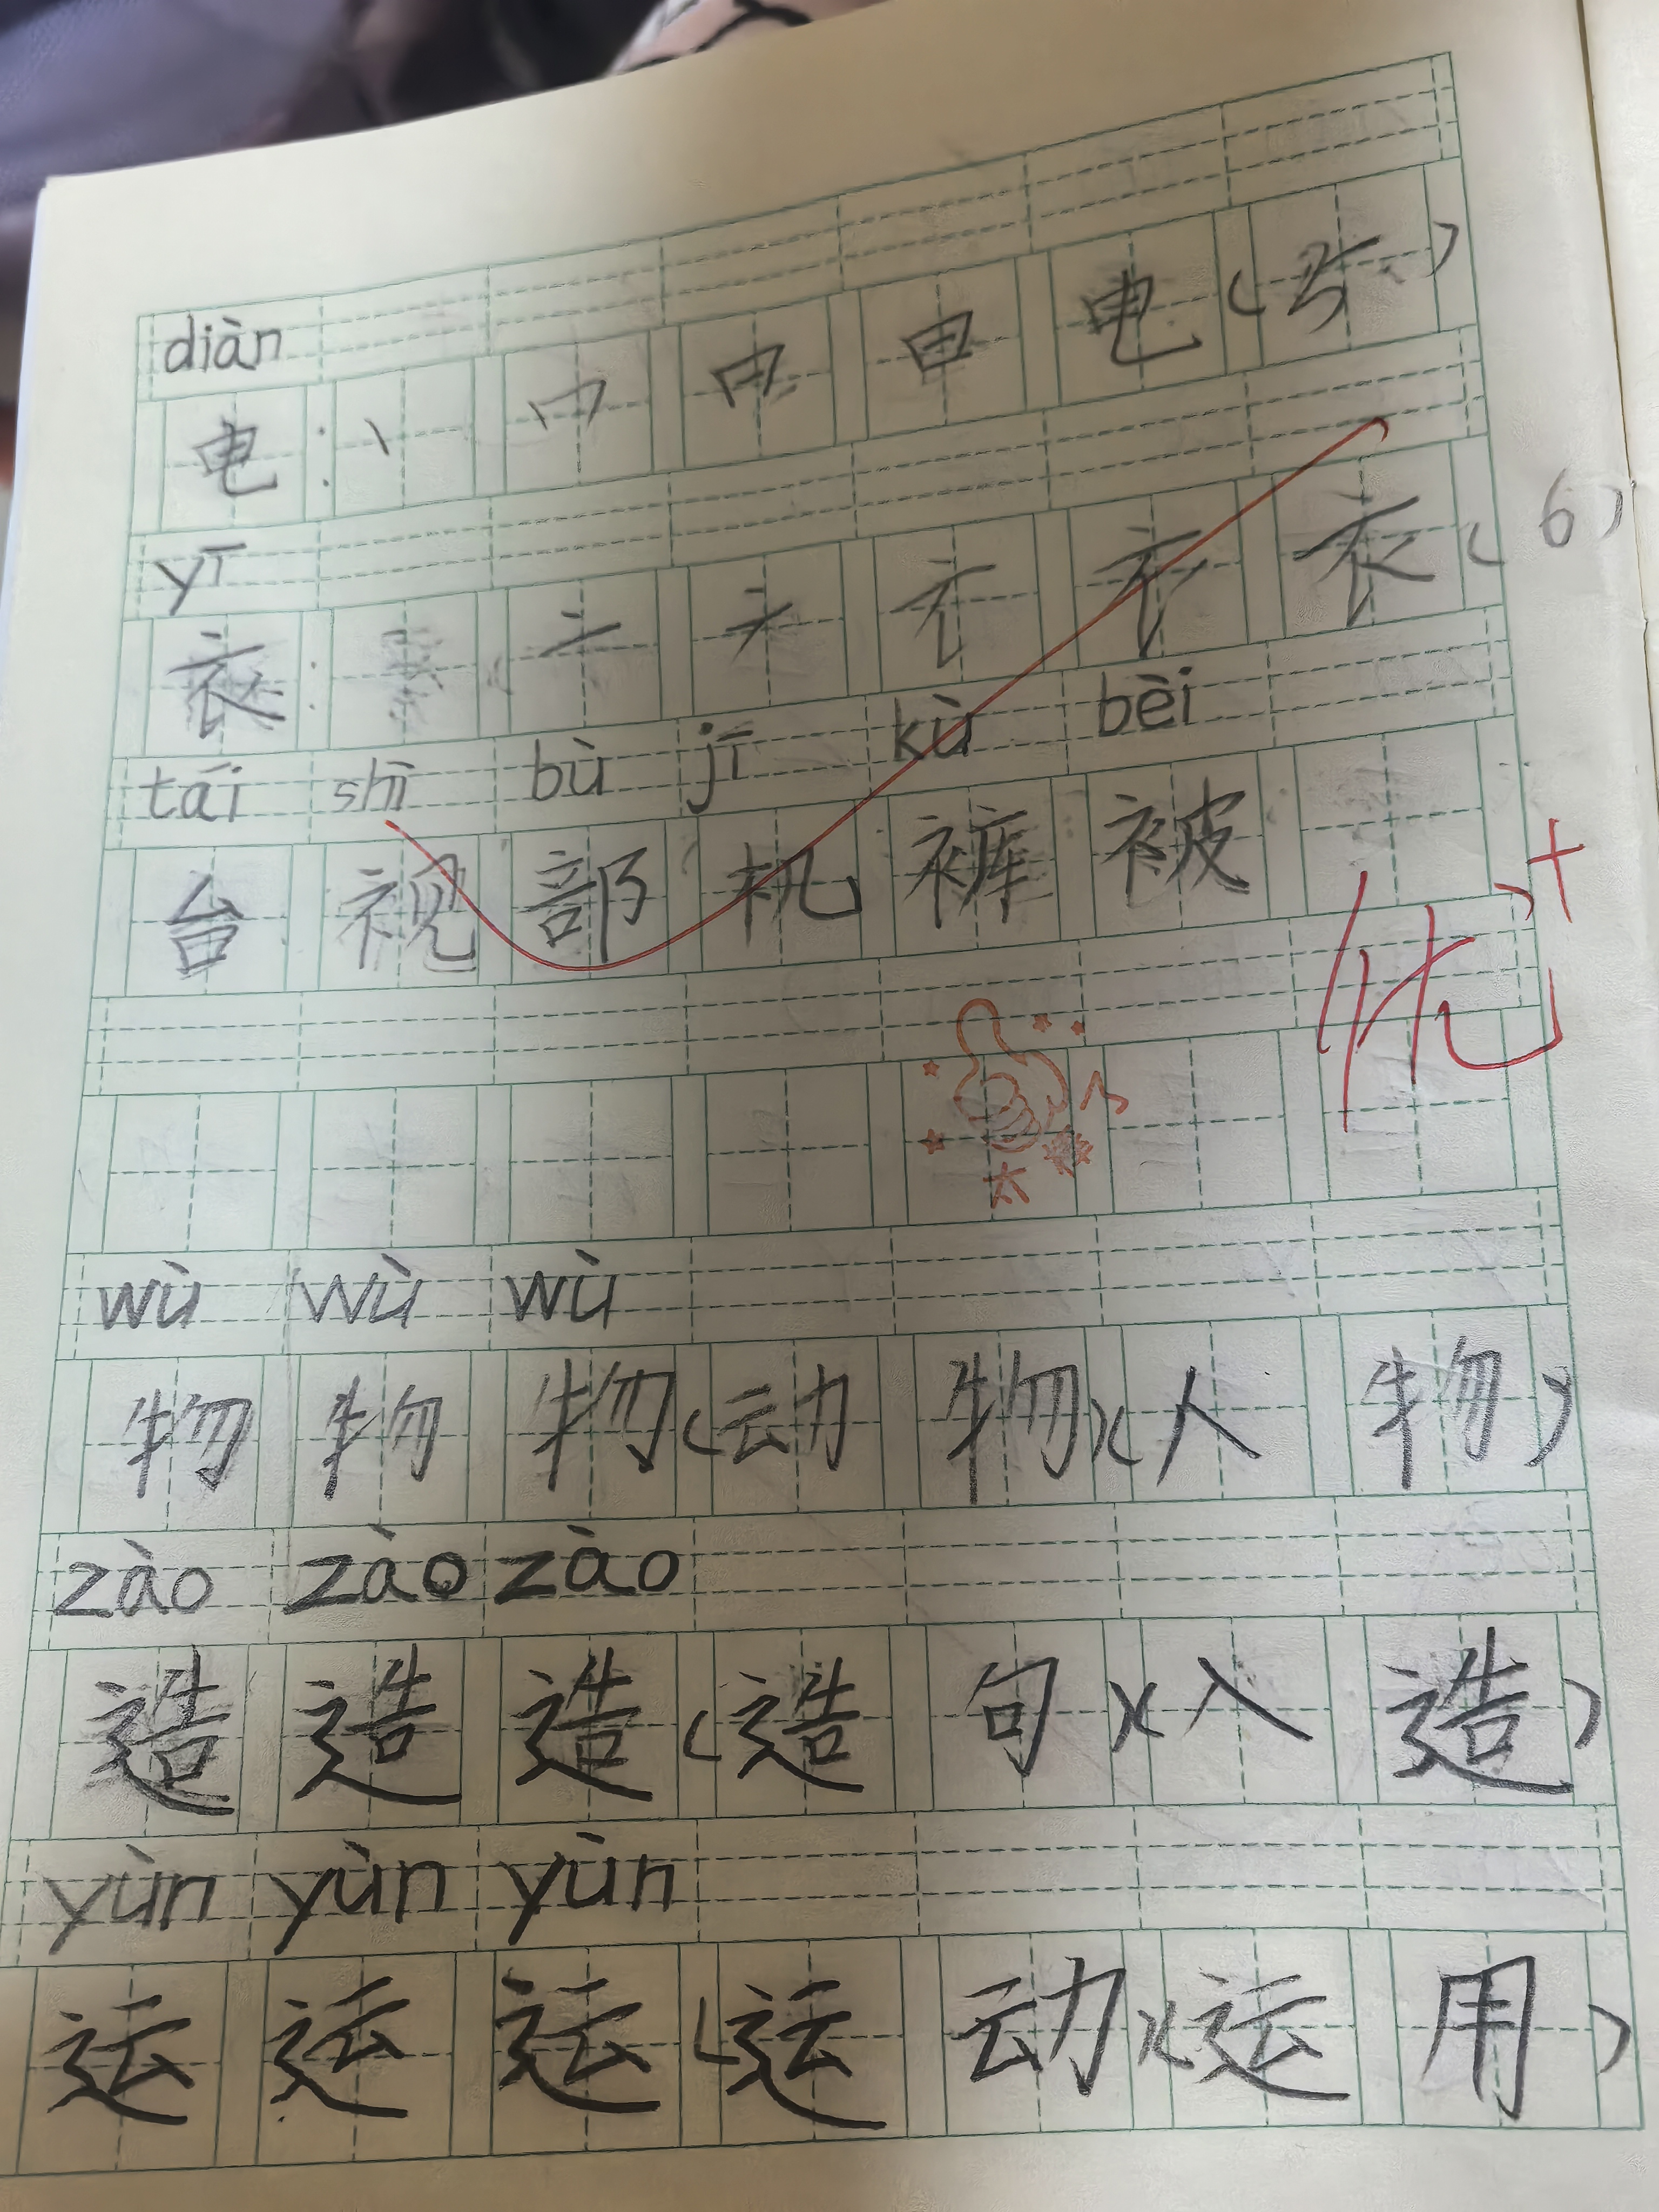 diàn
电：丨 冂 日 日 电（5）
yī
衣：丶 亠 ナ 衣（6）
tái shì bù jī kù bèi
台 视 部 机 裤 被
优+
wù wù wù
物 物 物（动 物）（人 物）
zào zào zào
造 造 造（造 句）（人 造）
yùn yùn yùn
运 运 运（运 动）（运 用）